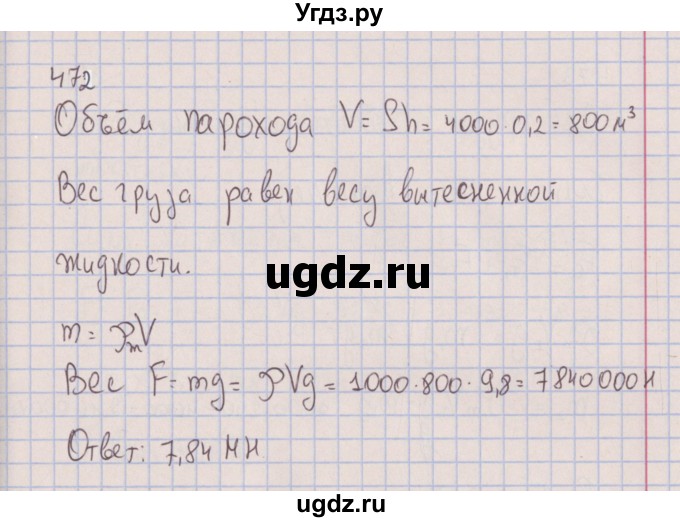 Угдз.ру
472
Объём парохода V = Sh = 4000·0,2 = 800 м³
Вес груза равен весу вытесненной
жидкости.
ugdz.ru
m = ρₘV
Вес F = mg = ρVg = 1000·800·9,8 = 7840000 Н
Ответ: 7,84 МН
ugdz.ru